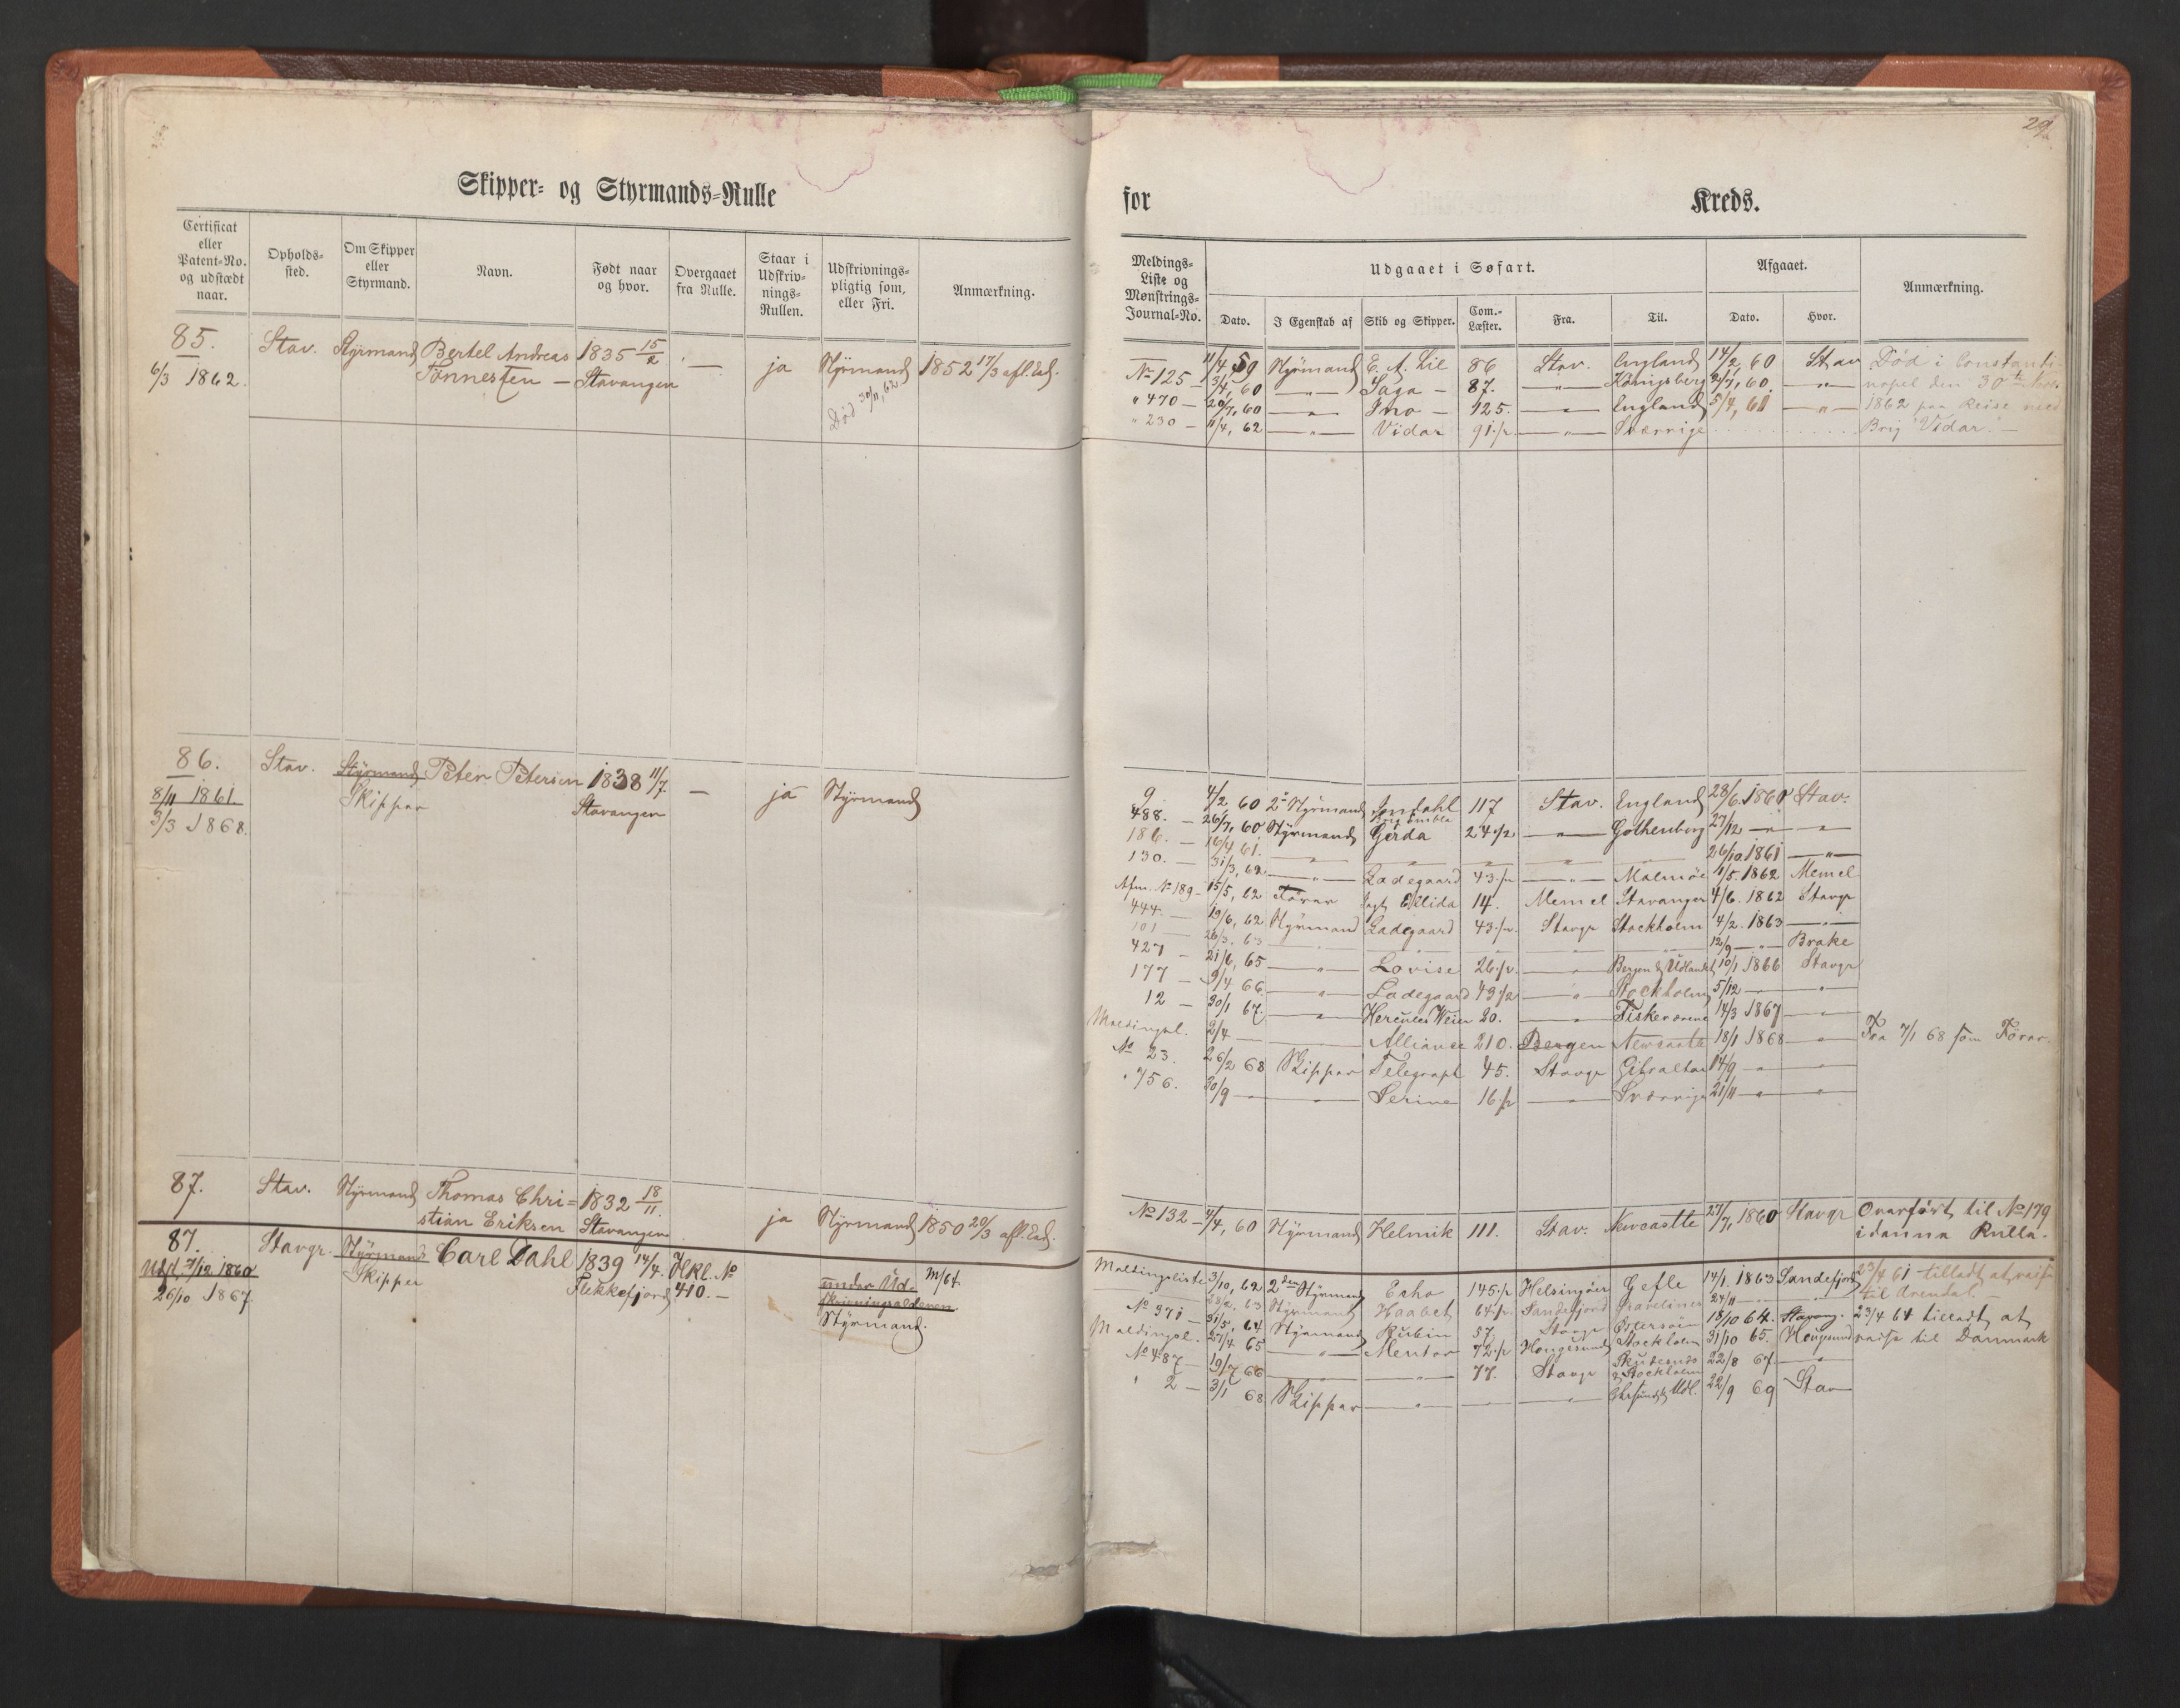 29
Skipper- og Styrmands-Rulle
for Kreds.
Certificat eller Patent-No. og udstædt naar.
Opholds-sted.
Om Skipper eller Styrmand.
Navn.
Født naar og hvor.
Overgaaet fra Rulle.
Staar i Udskriv-nings-Rullen.
Udskrivnings-pligtig som, eller Fri.
Anmærkning.
Meldings-Liste og Mønstrings-Journal-No.
Udgaaet i Søfart.
Dato.
I Egenskab af
Skib og Skipper.
Com.-Læster.
Fra.
Til.
Afgaaet.
Dato.
Hvor.
Anmærkning.
85. Stav. Styrmand Bertel Andreas 1835 15/2 — ja Styrmand 1852 17/3 afl. Ed.
6/3 1862. Tønnesten — Stavanger
Død 30/11, 62
No 125 — 11/4 59 Styrmand E. A. Lie 86 Stav. England 14/2, 60 Stav Død i Constanti-
3/4, 60 — " — Saga — 87. — " — Königsberg 24/7, 60. — " — nopel den 30te Nov.
" 470 — 20/7, 60 — " — Ino — 125. — " — England 5/4, 61 — " — 1862 paa Reise med
" 230 — 11/4, 62 — " — Vidar 91 1/2 — " — Sverrige Brig "Vidar". —
86. Stav. Styrmand Peter Petersen 1838 11/7. — ja Styrmand
8/11 1861. Skipper Stavanger
3/3 1868.
9. 4/2 60 2d Styrmand Jondahl 117 Stav. England 28/6. 1860 Stav.
488. — 26/7, 60 Styrmand Gerda 24 1/2 — " — Gothenborg 27/12 — " — "
186. — 16/4 61. — " — 26/10 1861 — " —
130. — 31/3, 62 — " — Ladegaard 43 1/2 — " — Malmøe 11/5. 1862 Memel
Afm. No 189 — 15/5, 62 Fører Jagt Ellida 14. Memel Stavanger 4/6. 1862 Stavgr
444. — 19/6, 62 Styrmand Ladegaard 43 1/2 Stavgr Stockholm 4/2. 1863 — " —
101 — 26/3. 63 12/9 — " — Brake
427 — 21/6, 65 — " — Lovise 26 1/2 — " — Bergen & Udlandet 10/1 1866 Stavgr
177 — 9/4 66. — " — Ladegaard 43 1/2 — " — Stockholm 5/12 — "
12 — 30/1 67. — " — Hercules Weier 20. — " — Fiskerierne 14/3 1867 — " —
Meldingsl. 2/4 — Alliance 210. Bergen Newcastle 18/1 1868 — " — Fra 7/1 68 som Fører.
No 23. 26/2 68 Skipper Telegraph 45. Stavgr Gibraltar 14/9 — " — "
" 756. 30/9 — " — Serine 16 1/2 — " — Sverrige 21/11 — " — "
87. Stav. Styrmand Thomas Chri= 1832 18/11. ja Styrmand 1850 20/3 afl. Ed.
stian Eriksen Stavanger
No 132 — 4/4, 60 Styrmand Helmik 111. Stav. Newcastle 27/7, 1860 Stavgr Overført til No 179
i denne Rulle.
87. Stavgr. Styrmand Carl Dahl 1839 14/4. Hkl. No under Ud- M/64.
Udst. 21/12 1860 Skipper Flekkefjord 410. — skrivningsalderen
26/10 1867. Styrmand.
Meldingsliste 3/10, 62 2den Styrmand Echo 145 1/2 Helsingøer Gefle 14/1. 1863 Sandefjord 23/4 61 tilladt at reise
63 Styrmand Haabet 64 1/2 Sandefjord Gravelines 24/11 til Arendal. —
No 371 — 31/5, 64 Styrmand Rubin 57. Stavgr Østersøen 18/10 64. Stavang. 23/4 64 tilladt at
Meldingsl. 27/4 65 — " — Mentor 72 1/2 Haugesund Stockholm 31/10 65. Haugesund reise til Danmark
No 487 — 19/7 66 — " — 77. Stavgr Skudesnæs & Stockholm 22/8 67. — " —
" 2 — 3/1 68 Skipper — " — Chrsund & Udl. 22/9 69 Stav